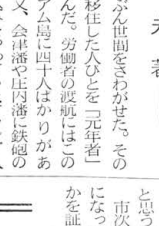 ぶん世間をさわがせた。その
移住した人びとを「元年者」
んだ。労働者の渡航にはこの
アム島に四十人ばかりがあ
又、会津藩や庄内藩に鉄砲の
と思う
市次
になっ
かを証